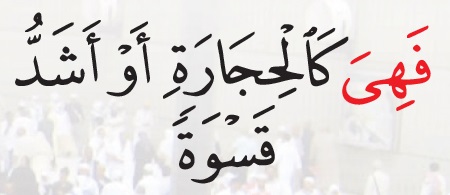 فَهِىَ كَٱلْحِجَارَةِ أَوْ أَشَدُّ
قَسْوَةً